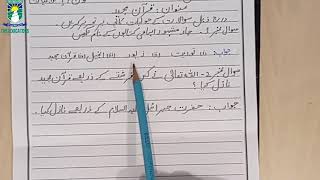 عنوان: قرآن مجید
درج ذیل سوالات کے جوابات کاپی پر تحریر کریں۔
سوال نمبر 1۔ چار مشہور الہامی کتابوں کے نام لکھیں
جواب: (i) تورات (ii) زبور (iii) انجیل (iv) قرآن مجید
سوال نمبر 2۔ اللہ تعالیٰ نے کس فرشتے کے ذریعے قرآن مجید
نازل کیا؟
جواب: حضرت جبرائیل علیہ السلام کے ذریعے نازل کیا۔